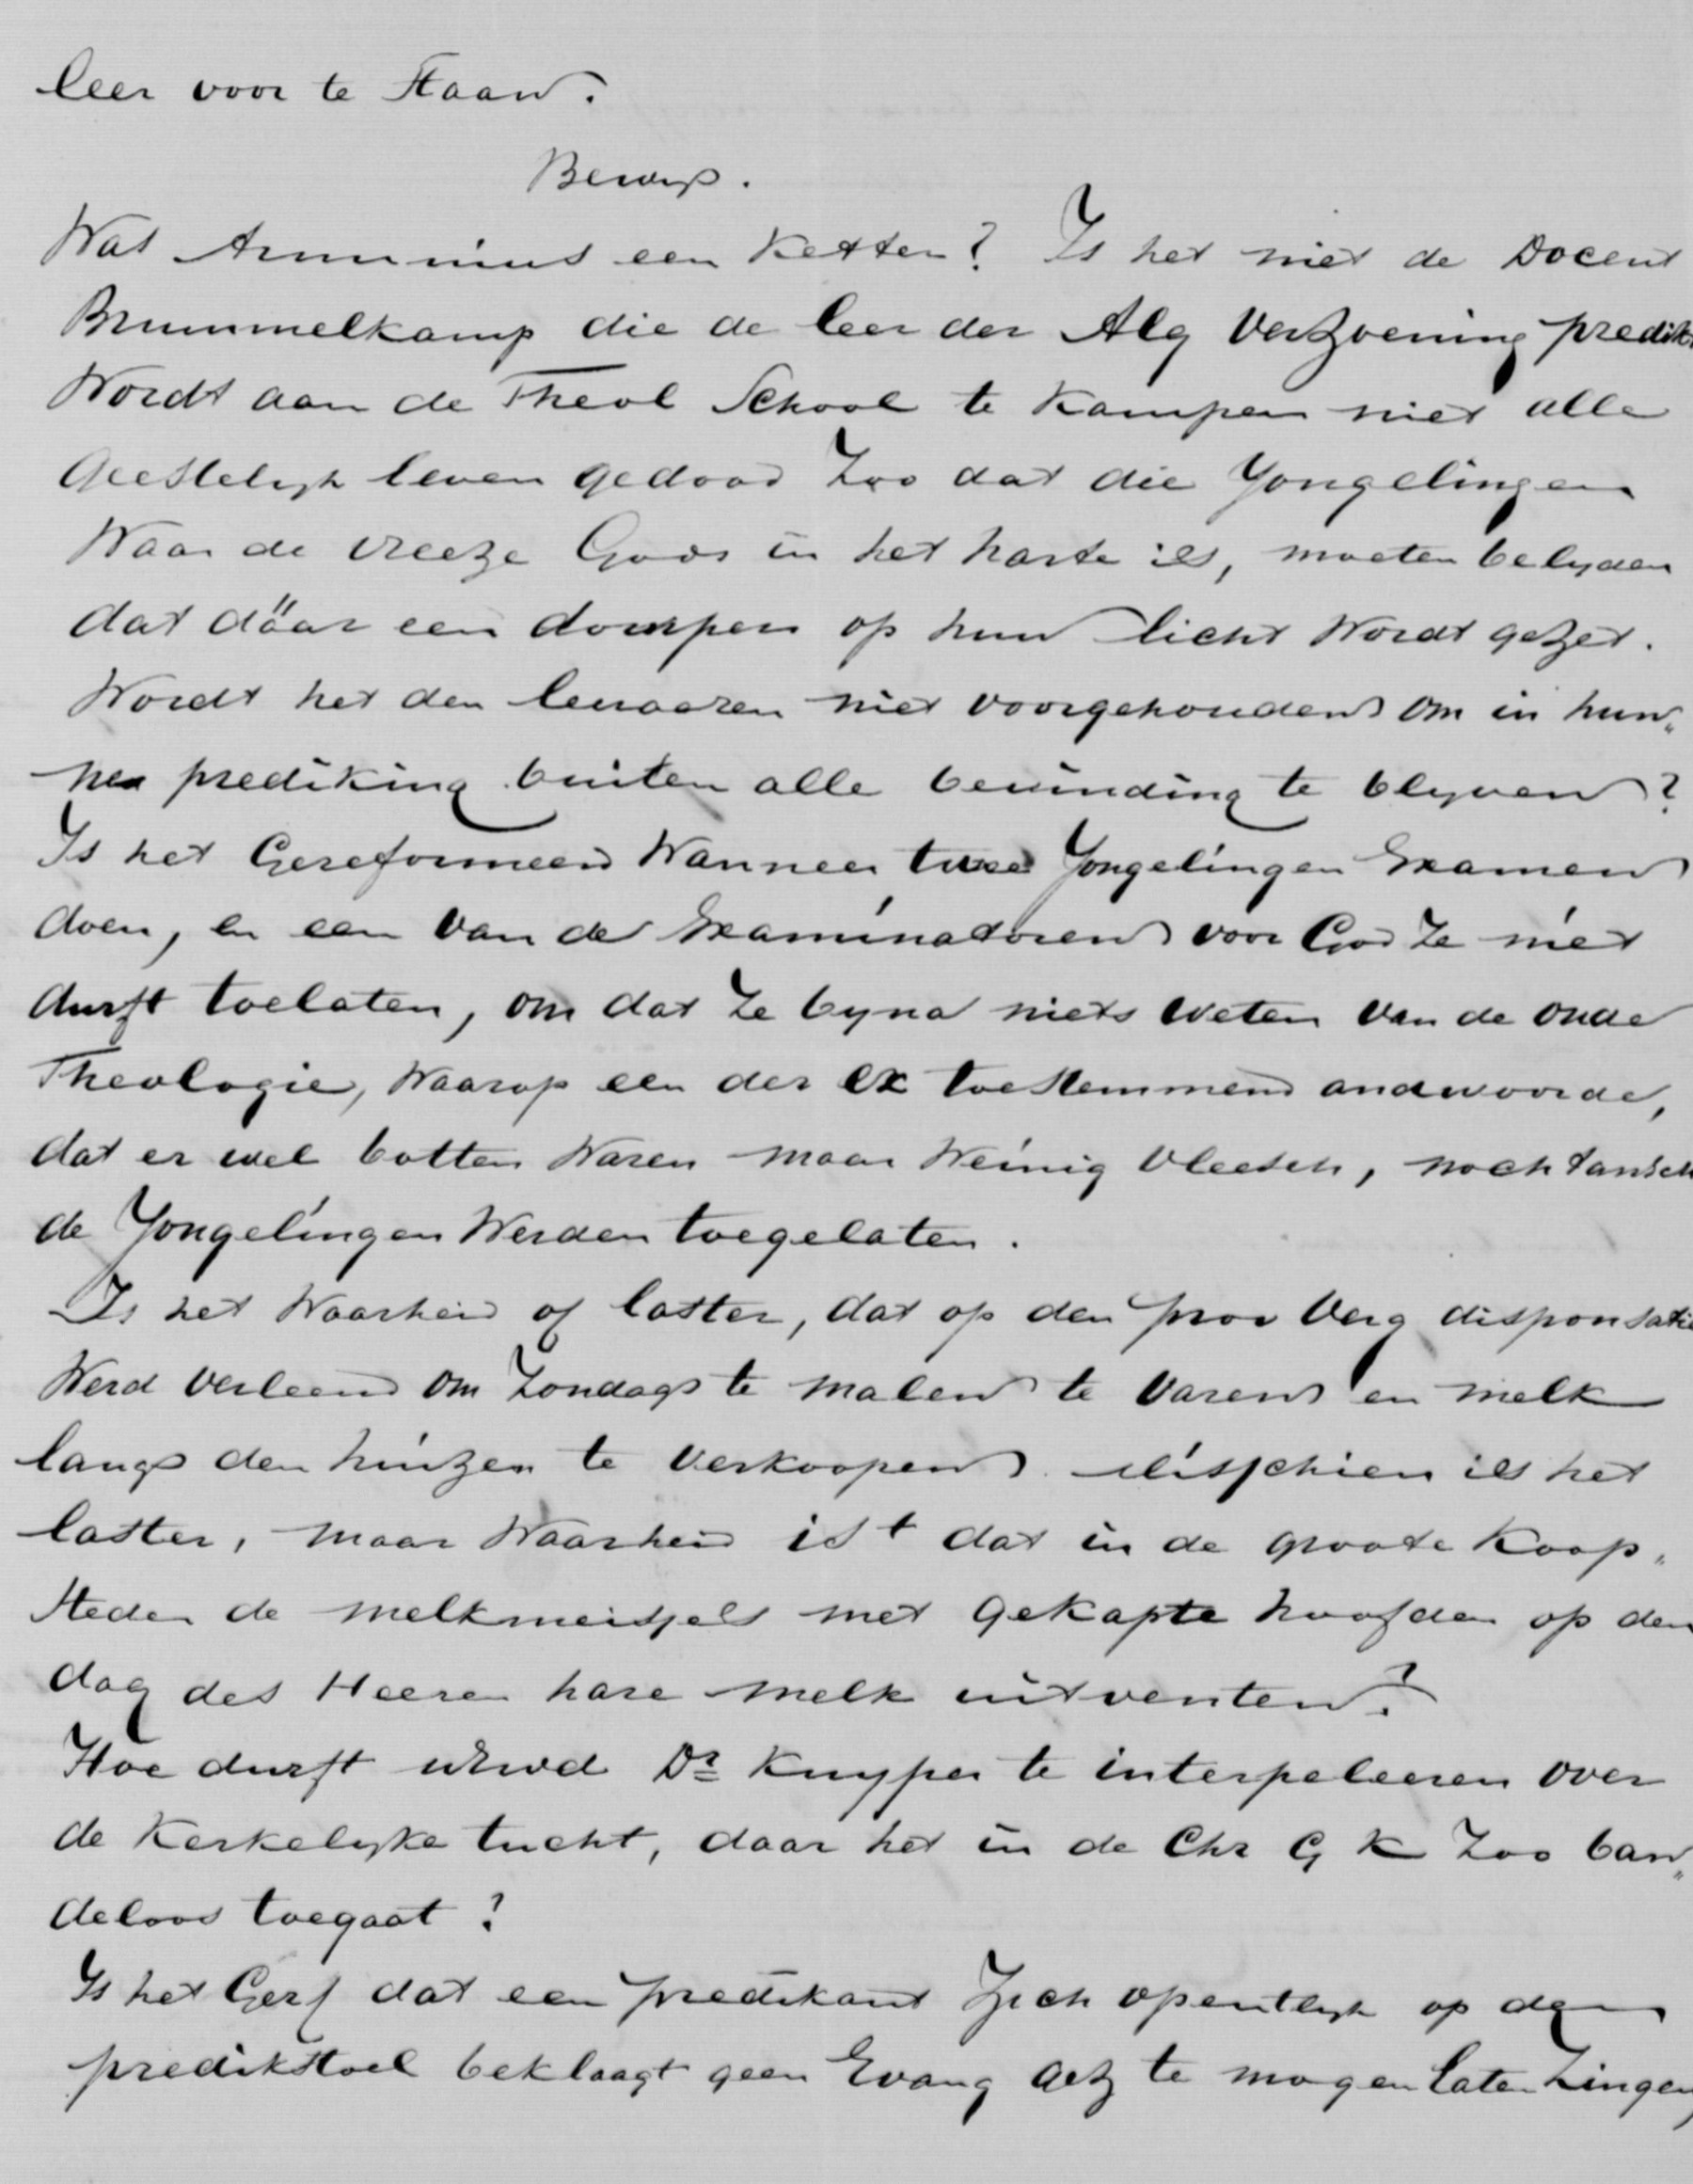 leer voor te staan.
Bewys.
Was Arminius een Ketter? Is het niet de Docent
Brummelkamp die de leer der Alg Verzoening predikt
Wordt aan de Theol School te Kampen niet alle
Geestelyk leven gedood Zoo dat die Jongelingen
Waar de vreeze Gods in het harte is, moeten belyden
dat däar een domper op hun licht Wordt gezet.
Wordt het den leeraaren niet voorgehouden om in hun„
ner prediking buiten alle bevinding te blyven?
Is het Gereformeerd Wanneer twee Jongelingen Examen
doen, en een van de Examinatoren voor God Ze niet
durft toelaten, om dat Ze byna niets weten van de oude
Theologie, Waarop een der ex toestemmend andwoorde,
dat er wel botten Waren maar Weinig vleesch, nochtansch
de Jongelingen Werden toegelaten.
Is het Waarheid of laster, dat op den prov Verg disponsatie
Werd verleend om Zondags te malen te varen en melk
langs den huizen te verkoopen. Misschien is het
laster, maar Waarheid ist dat in de groote Koop„
steden de melkmeisjes met gekapte hoofden op den
dag des Heeren hare melk uitventen?
Hoe durft uwd Dr Kuyper te interpeleeren over
de Kerkelyke tucht, daar het in de Chr G K Zoo ban„
deloos toegaat?
Is het Gerf dat een predikant Zich opentlyk op den
predikstoel beklaagt geen Evang Gez te mogen laten Zingen,